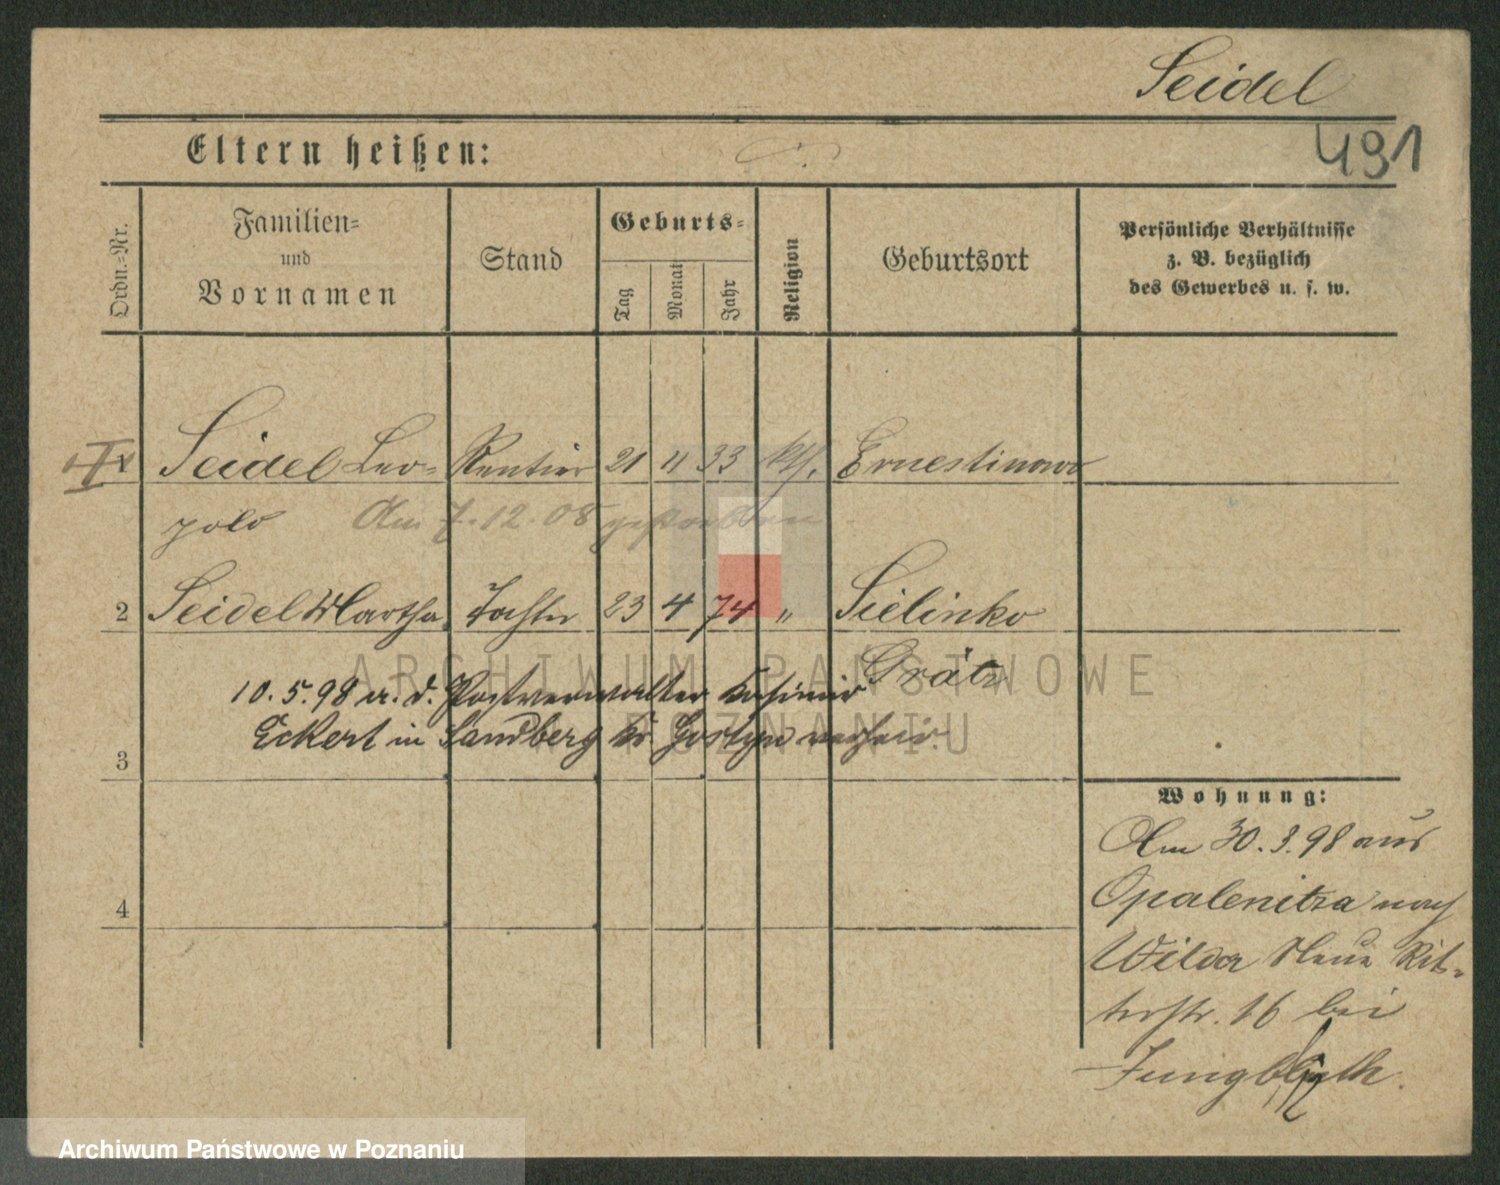 Seidel
491
Eltern heißen:
Ordn.-Nr.
Familien-
und
Vornamen
Stand
Geburts-
Tag
Monat
Jahr
Religion
Geburtsort
Persönliche Verhältnisse
z. B. bezüglich
des Gewerbes u. s. w.
1 Seidel Leo- Rentier 21 11 33 kth. Ernestinowo
pold Am 7.12.08 gestorben
2 Seidel Martha Tochter 23 4 74 " Sielinko
Grätz
10.5.98 m. d. Postverwalter Kasimir
Eckert in Sandberg Kr. Gostyn verheir.
3
Wohnung:
Am 30.3.98 aus
Opalenitza nach
4
Wilda Neue Rit-
terstr. 16 bei
Jungbluth.
ARCHIWUM PAŃSTWOWE
POZNANIU
Archiwum Państwowe w Poznaniu